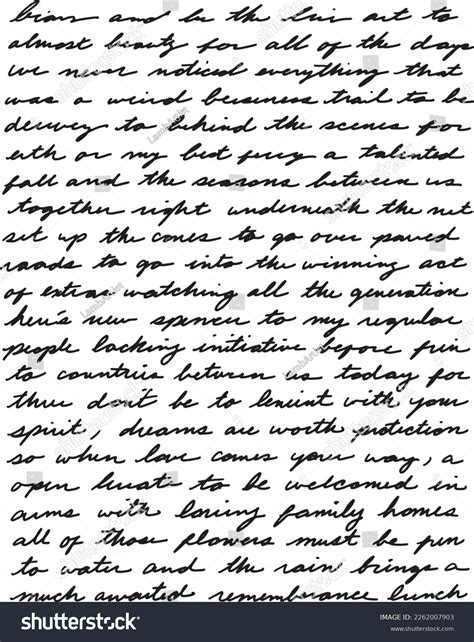 and be the art to
almost beauty for all of the days
we never noticed everything that
was a weird business trail to be
to behind the scenes for
or my best a talented
fall and the seasons between us
together right underneath the net
set up the cones to go over paved
roads to go into the winning act
of extras watching all the generation
here's new spencer to my regular
people lacking initiative before
to countries between us today for
don't be to with your
spirit, dreams are worth protection
so when love comes your way, a
open to be welcomed in
arms with loving family homes
all of those flowers must be fun
to water and the rain brings a
much awaited remembrance lunch
LambArtist
shutterstock
IMAGE ID: 2262007903
www.shutterstock.com